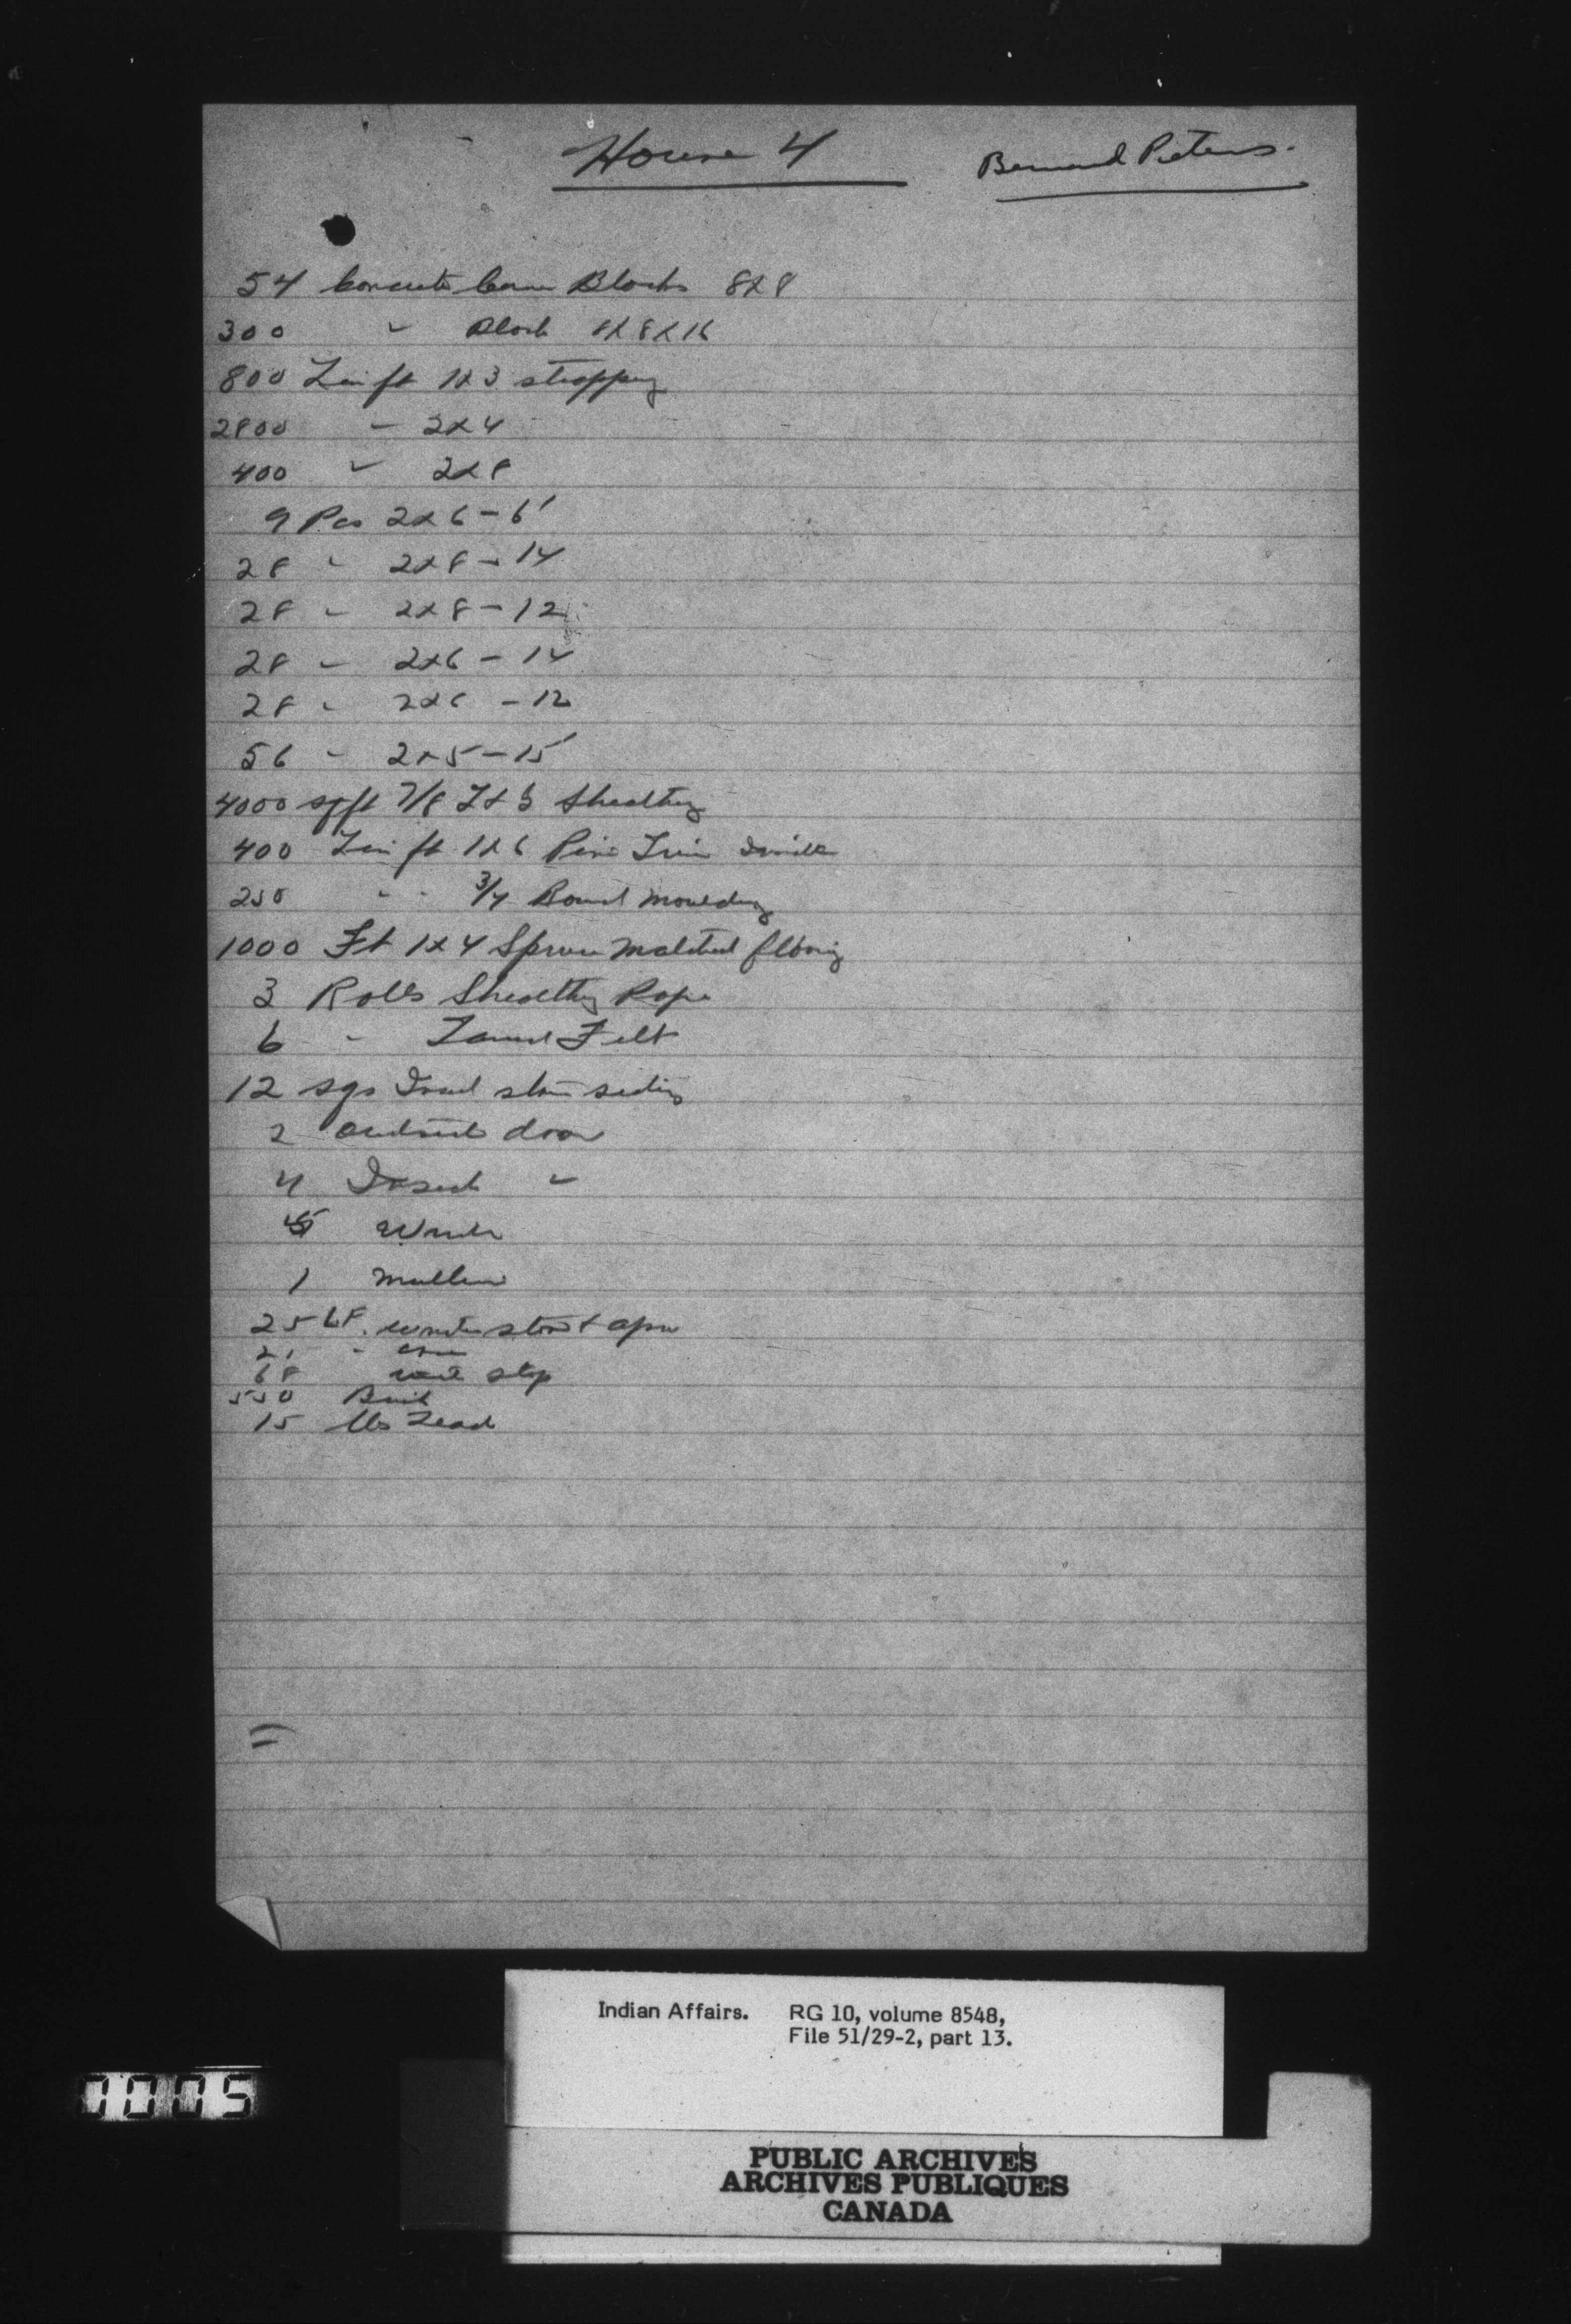 House 4
Bernard Peters.
54 Concrete Corner Blocks 8x8
300 " Block 8x8x16
800 Lin ft 1x3 strapping
2800 " 2x4
400 " 2x8
9 Pcs 2x6-6'
28 " 2x8-14
28 " 2x8-12
28 " 2x6-14
28 " 2x6-12
56 " 2x5-15'
4000 sqft 7/8 T&G Sheathing
400 Lin ft 1x6 Pine Trim
250 " " 3/4 Round Moulding
1000 Ft 1x4 Spruce Matched flooring
3 Rolls Sheathing Pape
6 " Tarred Felt
12 sqs siding
2 outside door
4 Inside "
5 Window
1 Mullion
25 LF. window
21 "
68 stop
550 Brick
15 lbs Lead
=
Indian Affairs. RG 10, volume 8548,
File 51/29-2, part 13.
0005
PUBLIC ARCHIVES
ARCHIVES PUBLIQUES
CANADA